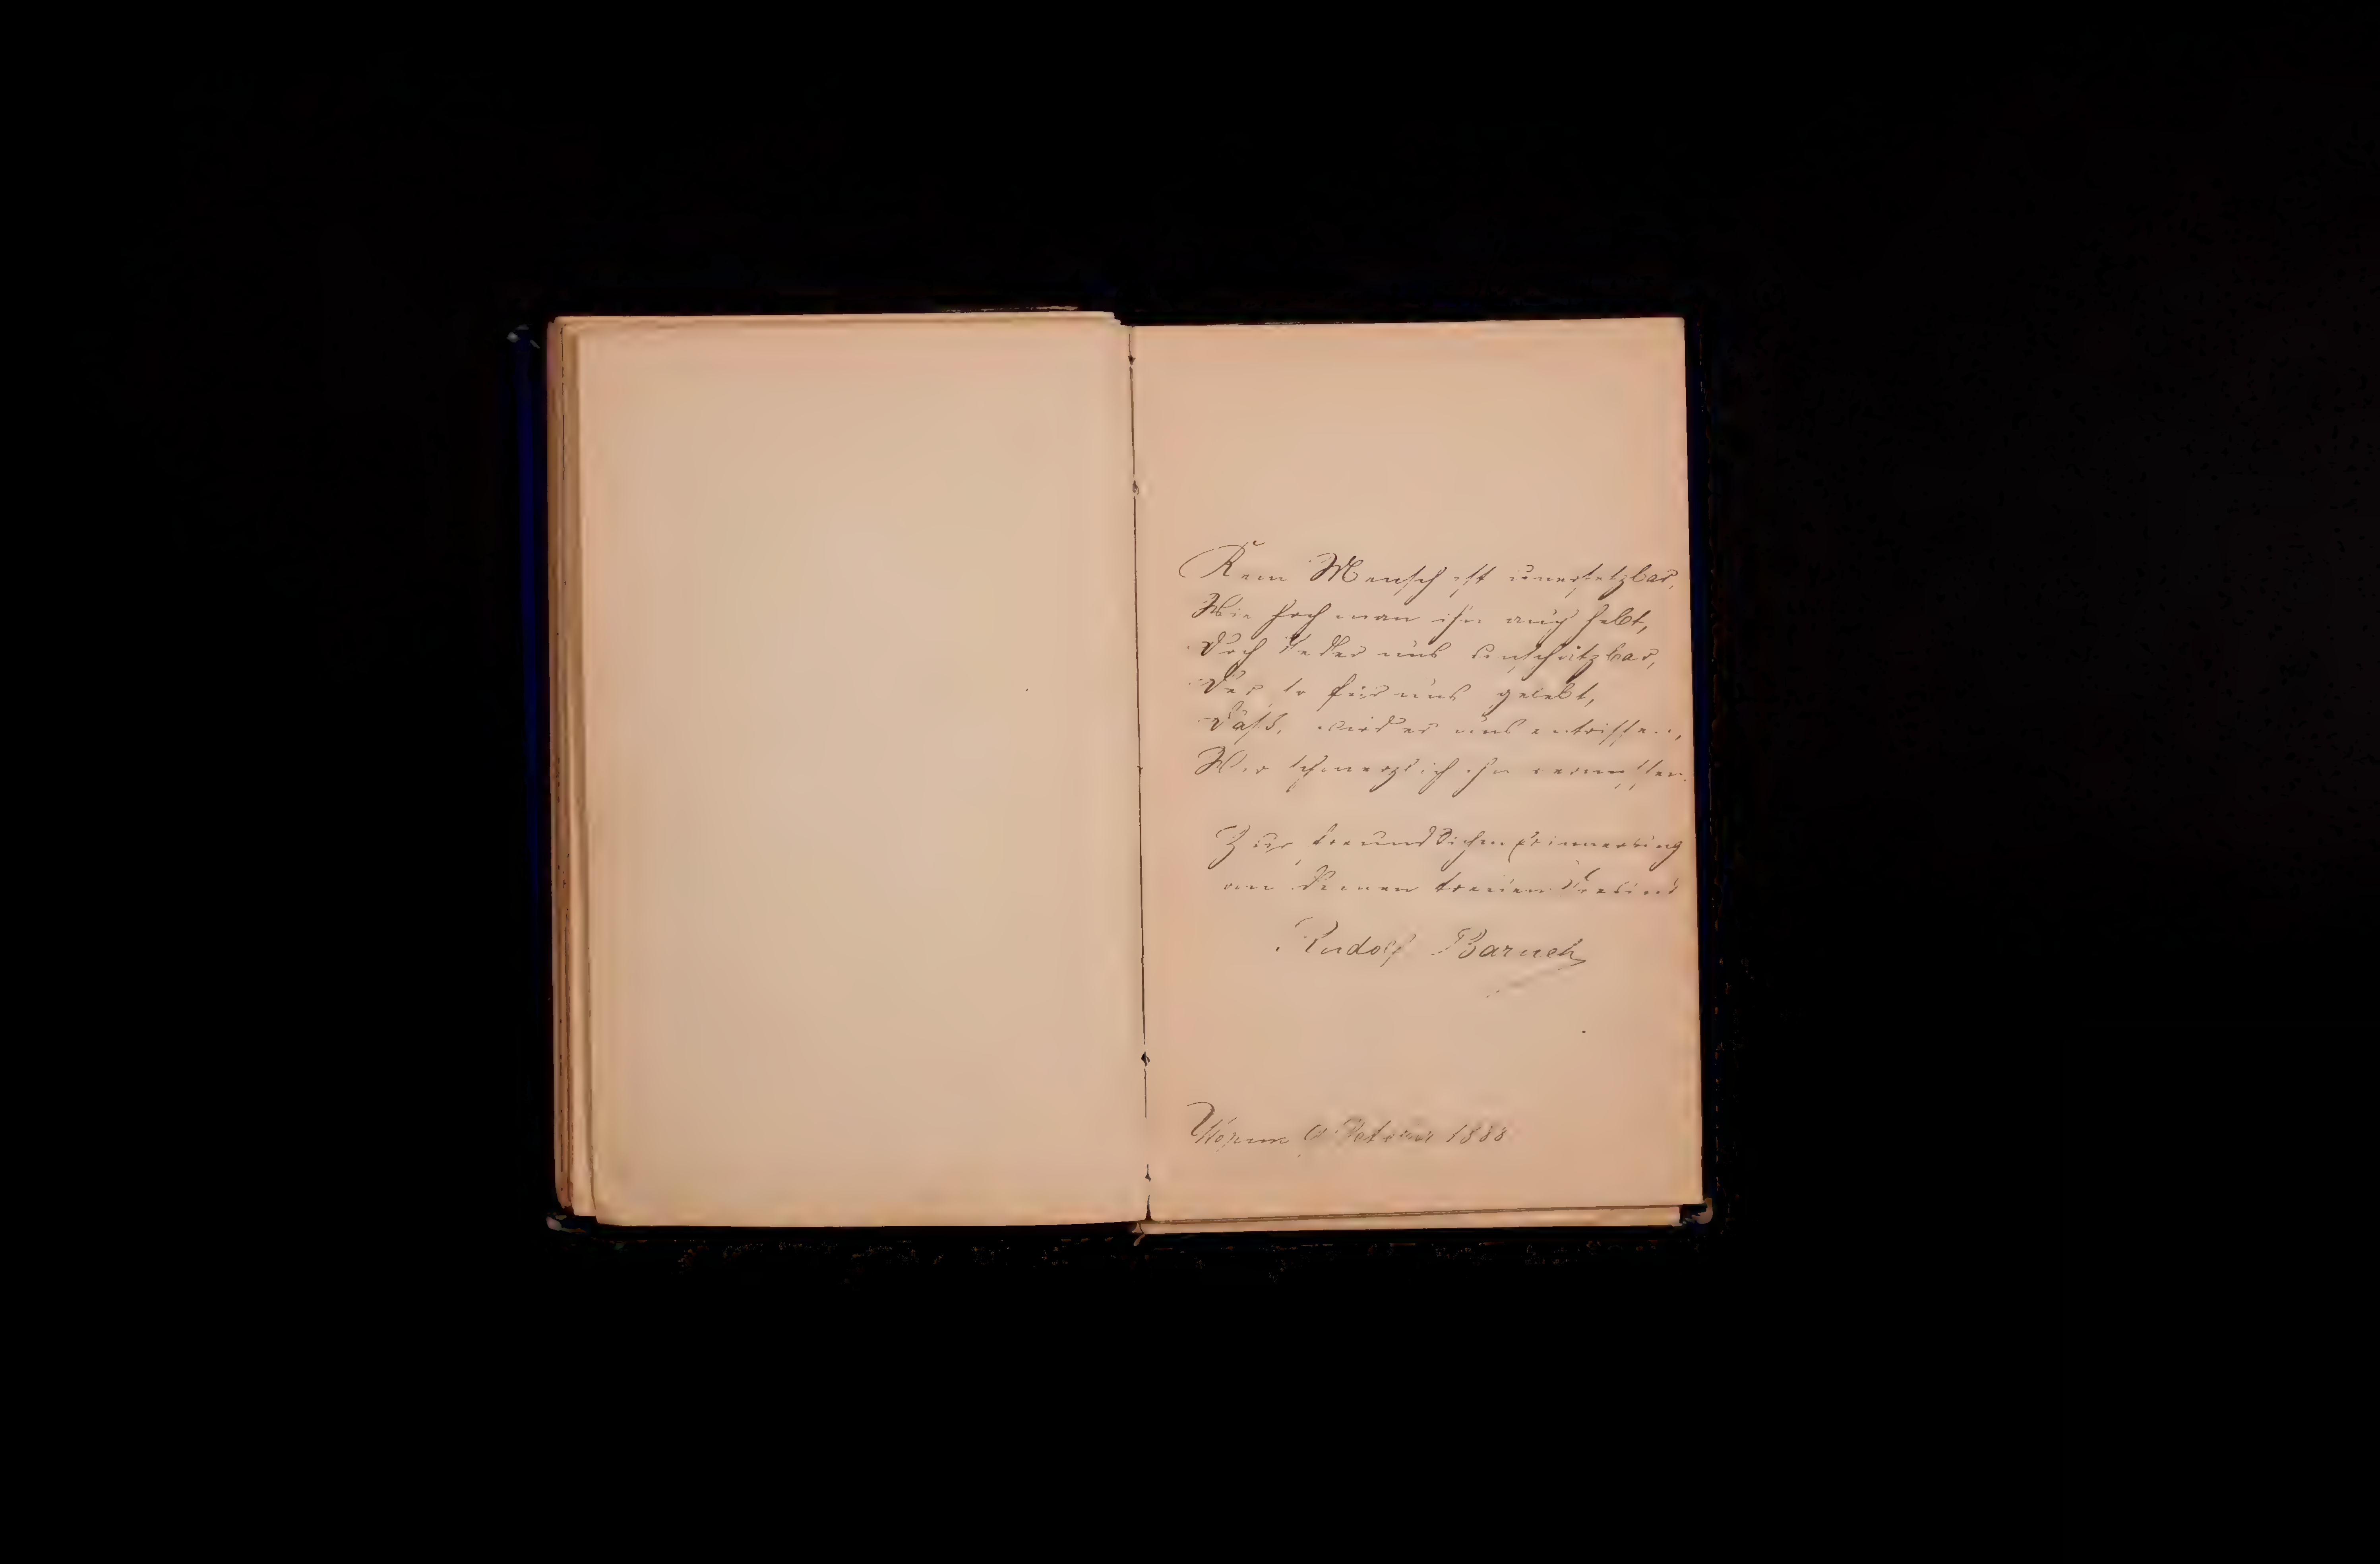 Kein Mensch ist unersetzbar,
Wie hoch man ihn auch hebt,
Doch Jeder uns unschätzbar,
Der so für uns gelebt,
Daß, wird er uns entrissen,
Wir schmerzlich ihn vermissen.
Zur freundlichen Erinnerung
an Deinen treuen Freund
Rudolf Baruch
1888